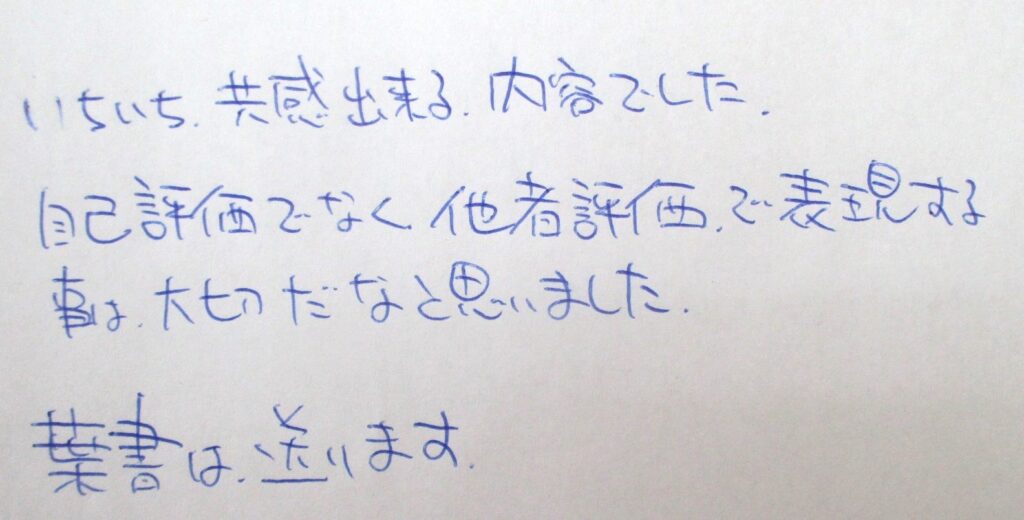 いちいち、共感出来る、内容でした。
自己評価でなく、他者評価、で表現する
事は、大切だなと思いました。
葉書は、送ります。